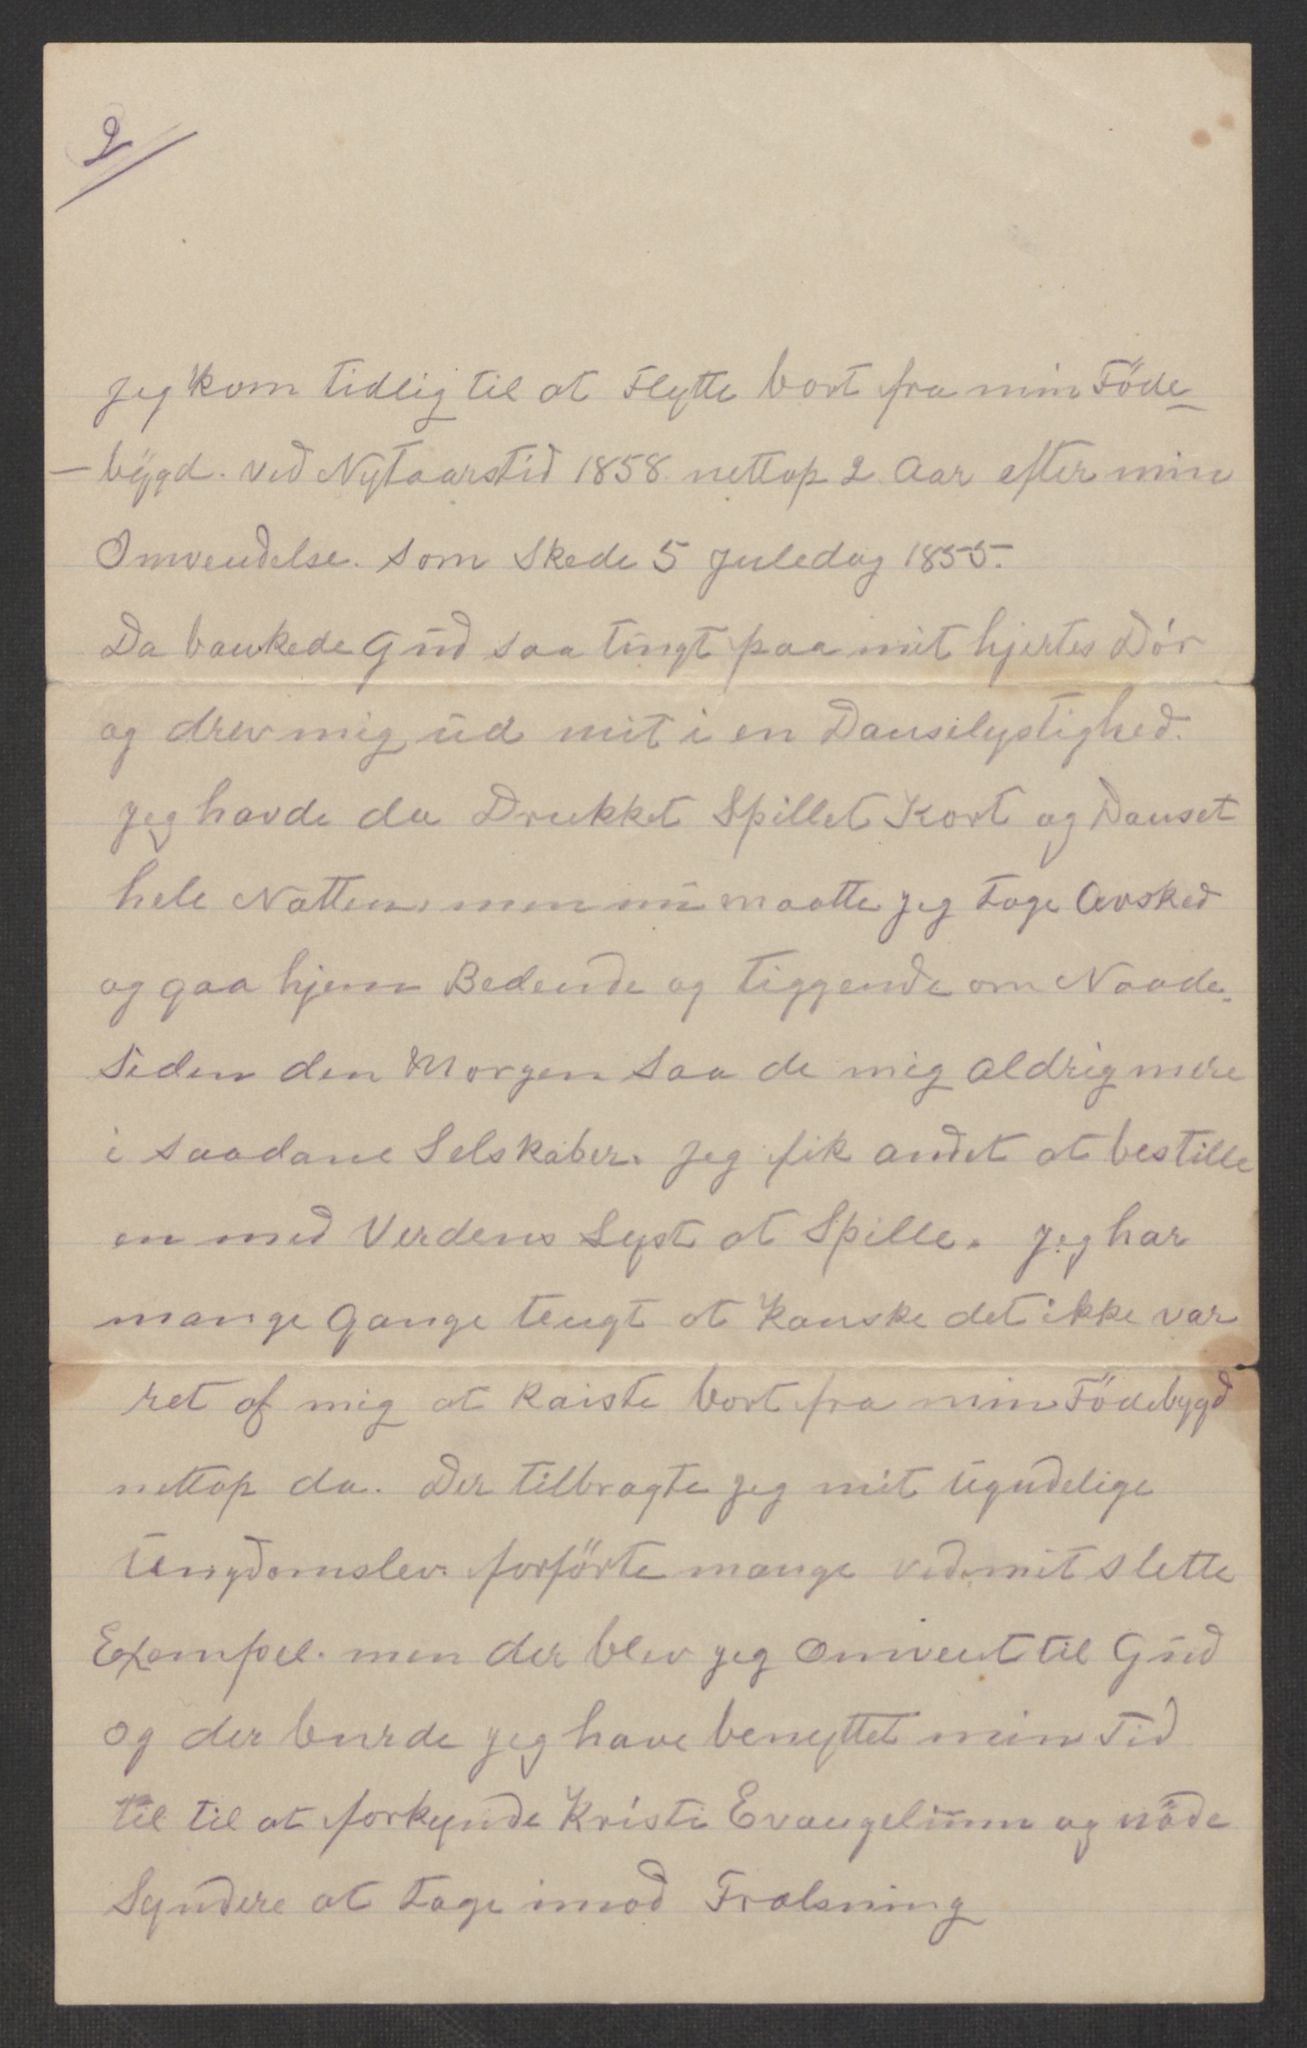 2/
jeg kom tidlig til at Flytte bort fra min Föde-
- bÿgd. ved Nytaarstid 1858. nettop 2 Aar efter min
Omvendelse. som Skede 5 juledag 1855.
Da bankede Gud saa tungt paa mit hjertes Dör
og drev mig ud mit i en Danselystighed.
jeg havde da Drukket Spillet Kort og Danset
hele Natten, men nu maatte jeg tage Avsked
og gaa hjem Bedende og tiggende om Naade.
Siden den Morgen saa de mig aldrig mere
i saadane Selskaber. jeg fik andet at bestille
en med Verdens Lyst at Spille. jeg har
mange Gange tengt at kanske det ikke var
ret af mig at Raiste bort fra min Födebygd
nettop da. Der tilbragte jeg mit Ugudelige
Ungdomslev. forförte mange ved mit slette
Exempel. men der blev jeg Omvent til Gud
og der burde jeg have benyttet min Tid
til til at forkynde Kristi Evangelium og nöde
Syndere at tage imod Fralsning